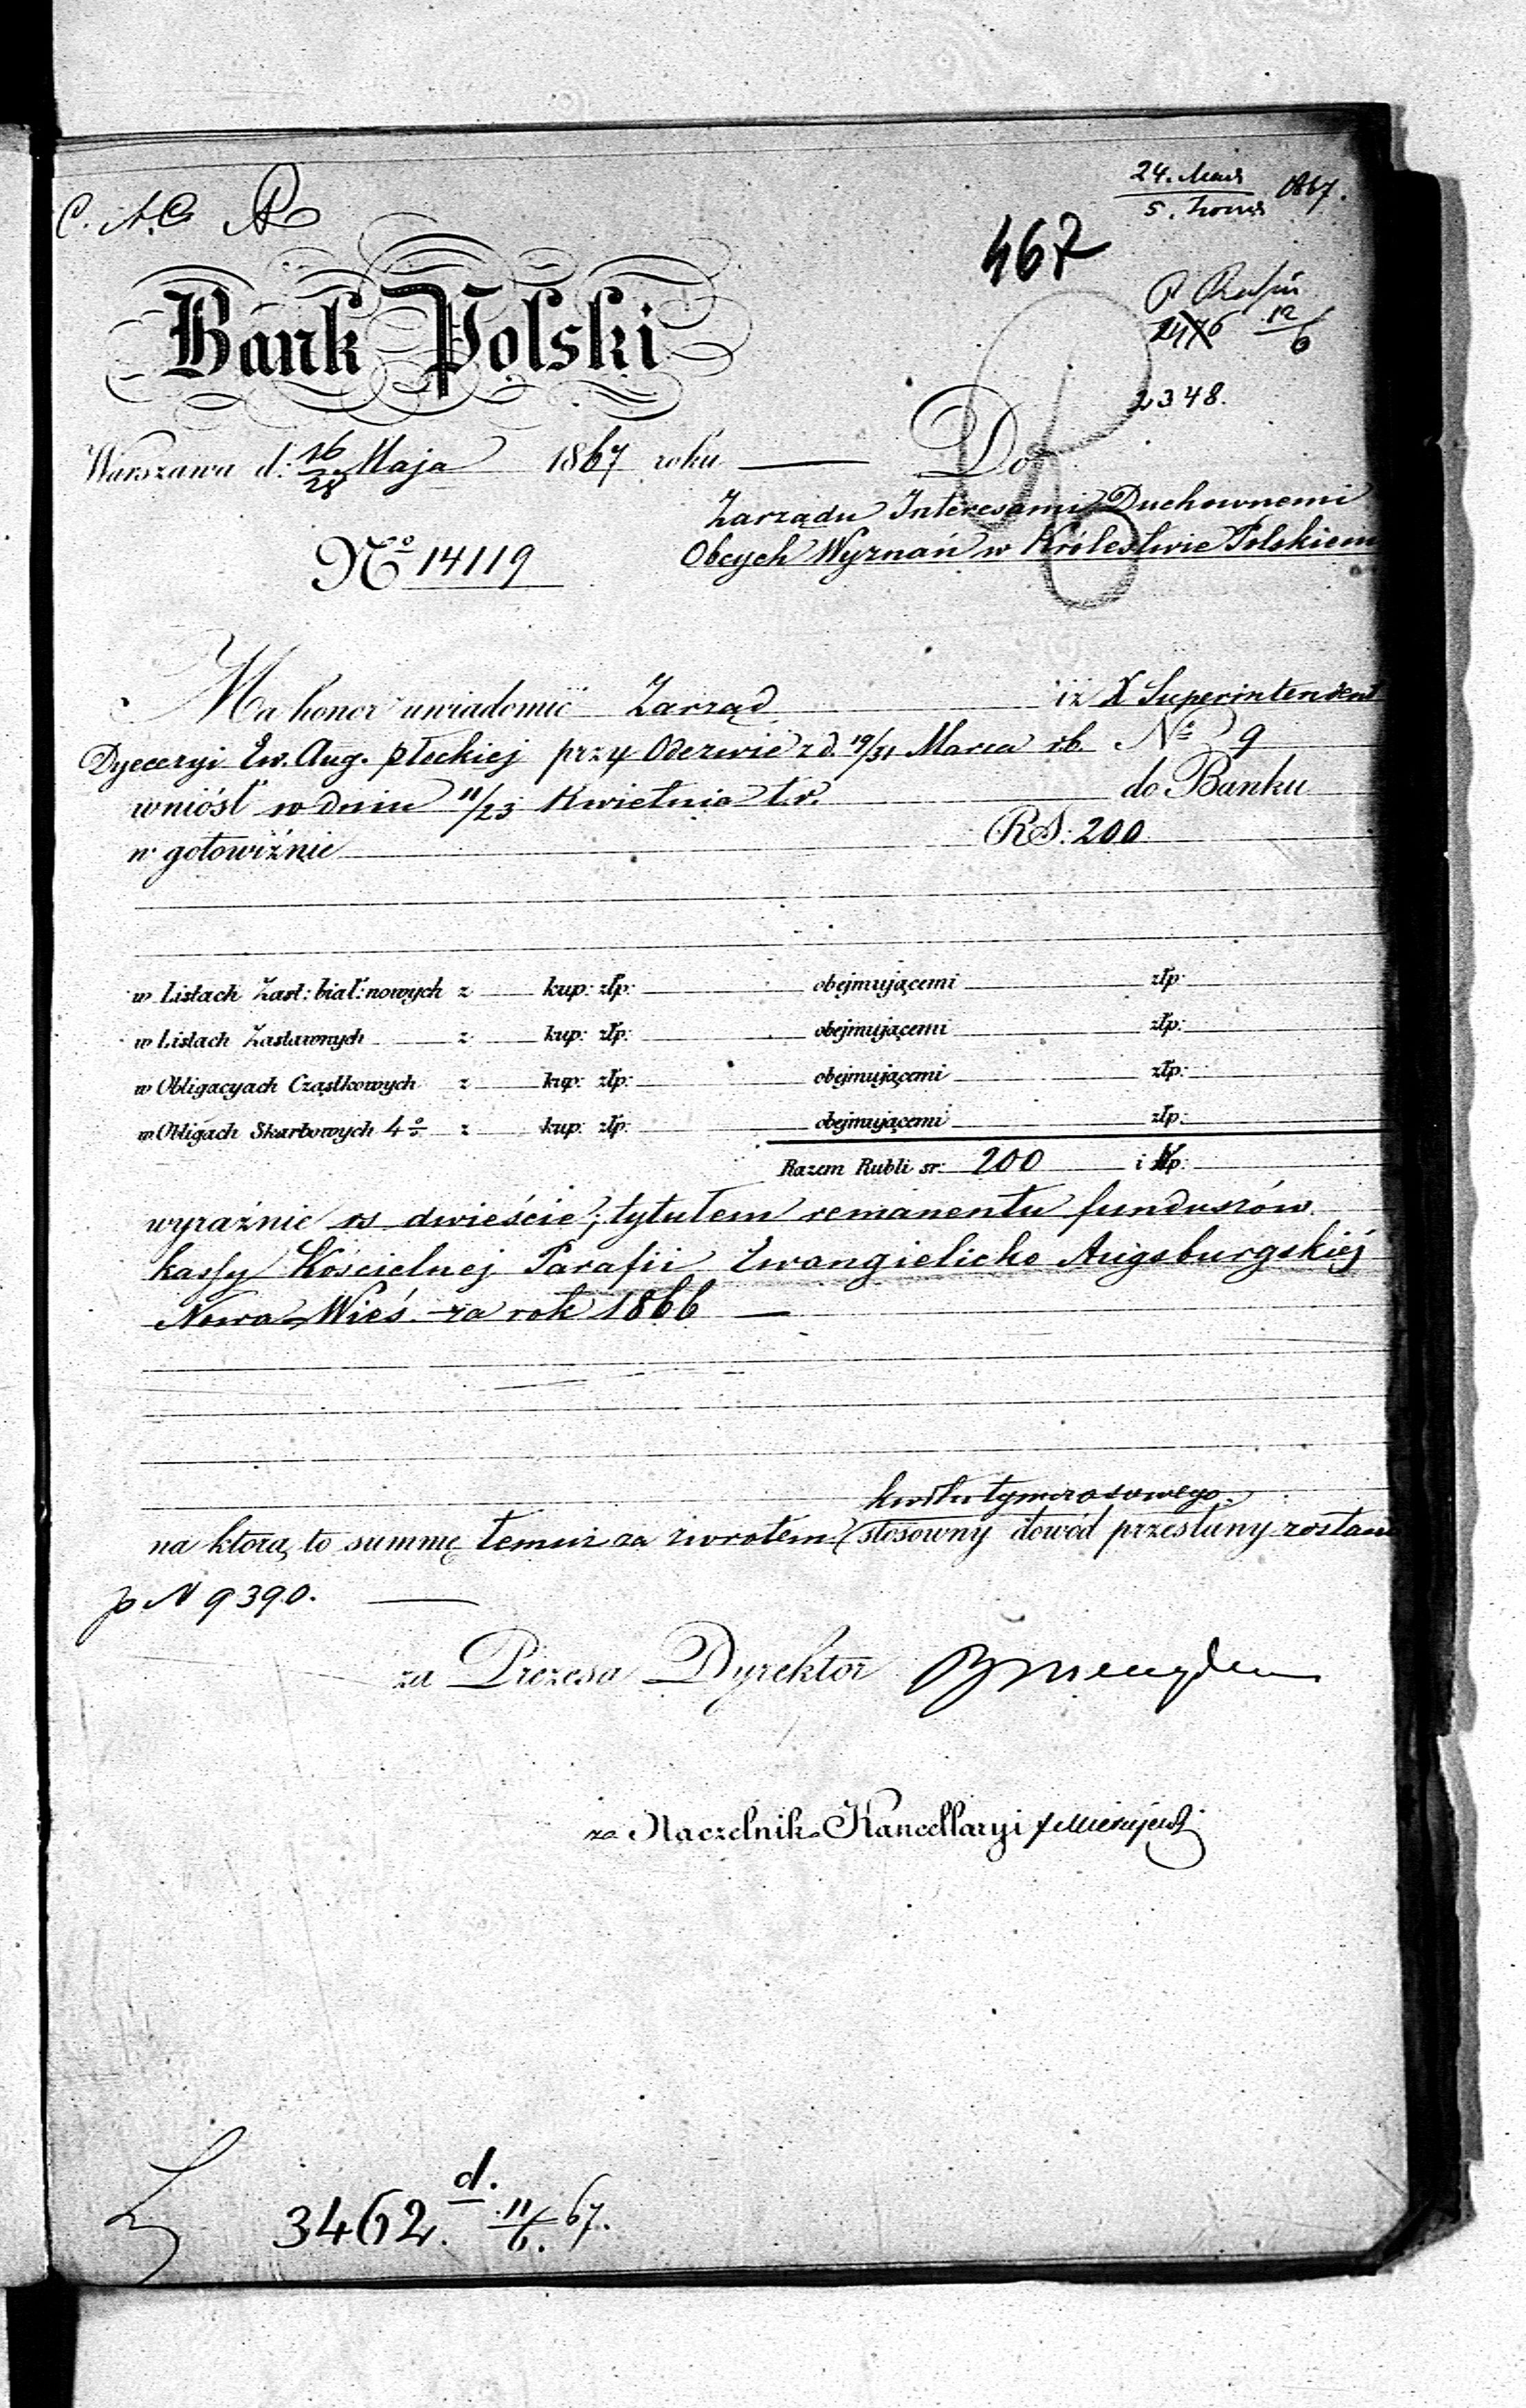 C. A. C
24. Maja / 5. 1867.
467
12/6
2348.
Bank Polski
Warszawa d: 16/28 Maja 1867 roku
Do
Zarządu Interesami Duchownemi
Obcych Wyznań w Królestwie Polskiem
No 14119
Ma honor uwiadomić Zarząd iż X Superintendent
Dyecezyi Ew. Aug. Płockiej przy Odezwie z d. 19/31 Marca r.b. No 9
wniósł w dniu 11/23 Kwietnia t.r. do Banku
w gotowiźnie RS: 200
w Listach Zast: biał: nowych z kup: złp: obejmującemi złp:
w Listach Zastawnych z kup: złp: obejmującemi złp:
w Obligacyach Cząstkowych z kup: złp: obejmującemi złp:
w Obligach Skarbowych 4% z kup: złp: obejmującemi złp:
Razem Rubli sr: 200 i złp:
wyraźnie rs dwieście; tytułem remanentu funduszów
kassy Kościelnej Parafii Ewangielicko Augsburgskiéj
Nowa Wieś za rok 1866
kwitu tymczasowego
na którą to summę temuż za zwrotem stosowny dowód przesłany zostanie
p. N 9390.
za Prezesa Dyrektor
za Naczelnik Kancellaryi
3462. d. 11/6. 67.